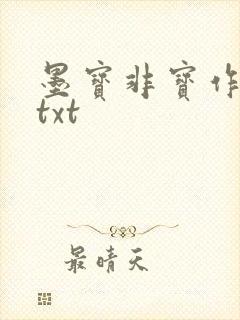 墨宝非宝作
txt
最晴天